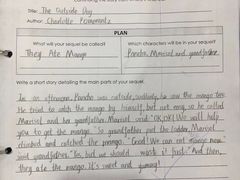 Title: The Outside Day
Author: Charlotte Pomerantz
PLAN
What will your sequel be called?
Which characters will be in your sequel?
They Ate Mango
Pancho, Marisol and grandfather
Write a short story detailing the main parts of your sequel.
In an afternoon, Pancho was outside, suddenly, he saw the mango tree.
He tried to catch the mango by himself, but not easy, so he called
Marisol and her grandfather. Marisol said "OK, ok! We will help
you to get the mango. So grandfather put the ladder, Marisol
climbed and catched the mango. Good! We can eat mango now
said grandfather. "Yes, but we should wash it first." And then,
they ate the mango. It's sweet and yummy!